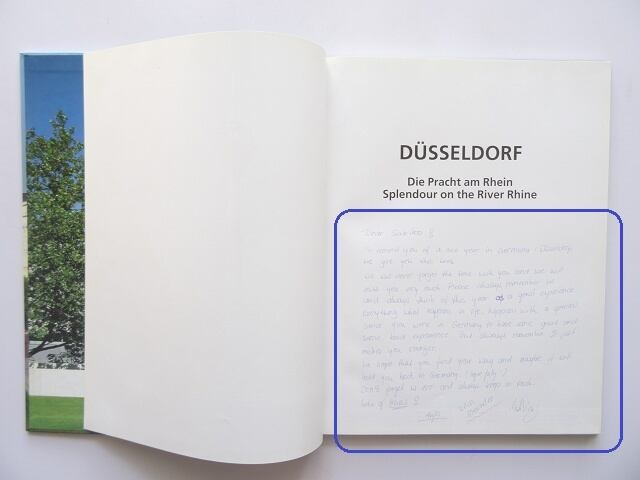 DÜSSELDORF
Die Pracht am Rhein
Splendour on the River Rhine
Dear
To remind you of a nice year in Germany Düsseldorf
we give you this book.
We will never forget the time with you and we will
miss you very much. Please always remember us
and always think of this year as a great experience.
Everything what happens in life, happens with a
you were in Germany to have some good and
some bad experience. But always remember it just
makes you stronger.
We hope that you find your way and maybe it will
lead you back to Germany. (hopefully!)
Don't forget us and always keep in touch.
Lots of